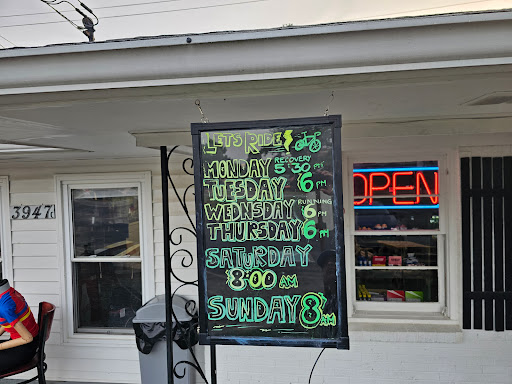 LET'S RIDE
MONDAY RECOVERY 5:30 PM
TUESDAY 6 PM
WEDNSDAY RUNNING 6 PM
THURSDAY 6 PM
SATURDAY
8:00 AM
SUNDAY 8 AM
OPEN
3947